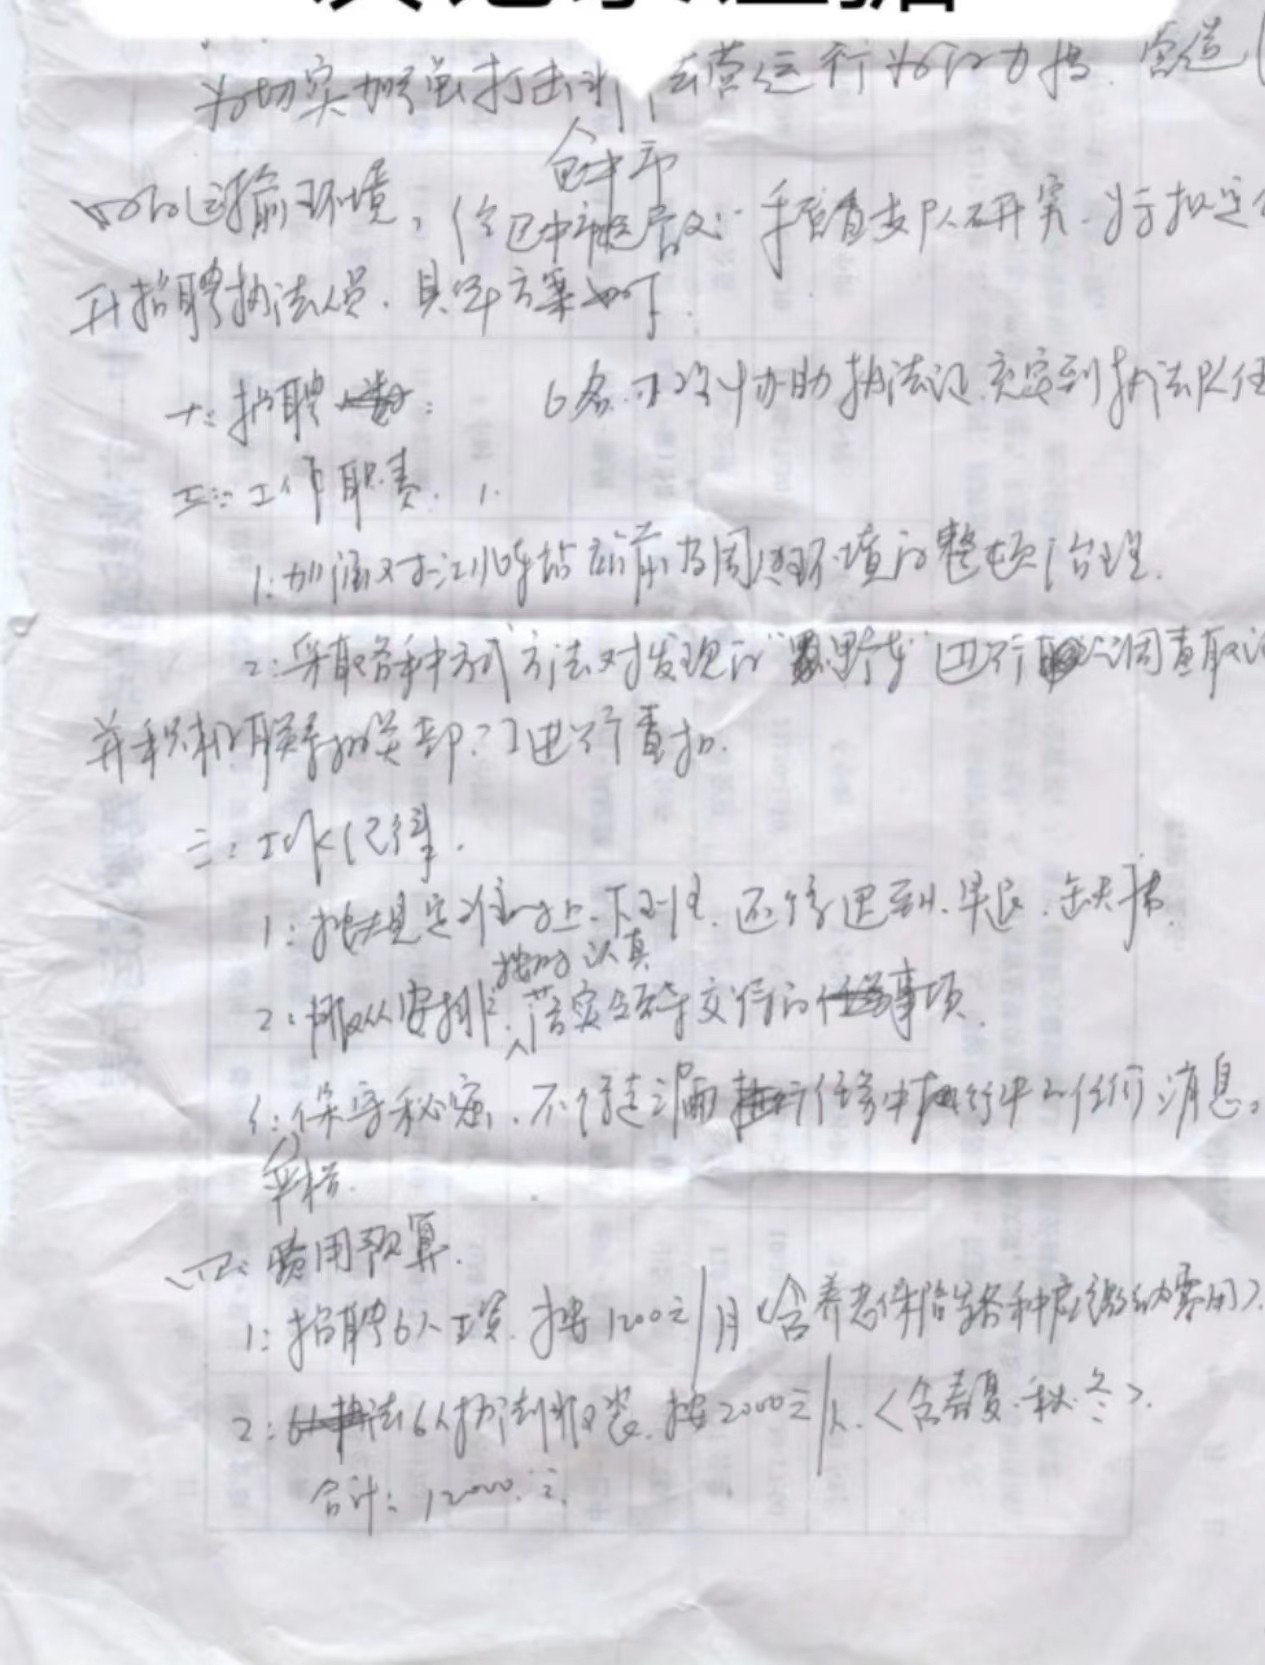 为切实加强打击非法营运行为的力度.营造
的运输环境,经巴中市运管处:手稽查支队研究.
巴中市
开招聘执法人员.具体方案如下.
一:招聘 : 6名.协助执法 充实到执法队伍
二:工作职责. 1.
1:加强对江北车站站前及周边环境的整顿治理.
2:采取各种方式方法对发现的"野的"进行调查取
并积极联系相关部门进行查扣.
三:工作纪律.
1:按规定准时上.下班.不得迟到.早退.缺席.
按时认真
2:服从安排.落实领导交待的任务事项.
保守秘密.不得透漏执行任务中执行中的任何消息。
四:费用预算.
1:招聘6人工资.按1200元/月(含养老保险等各种应缴纳费用).
2:6人执法服装.按2000元/人.<含春夏.秋.冬>.
合计:12000.元